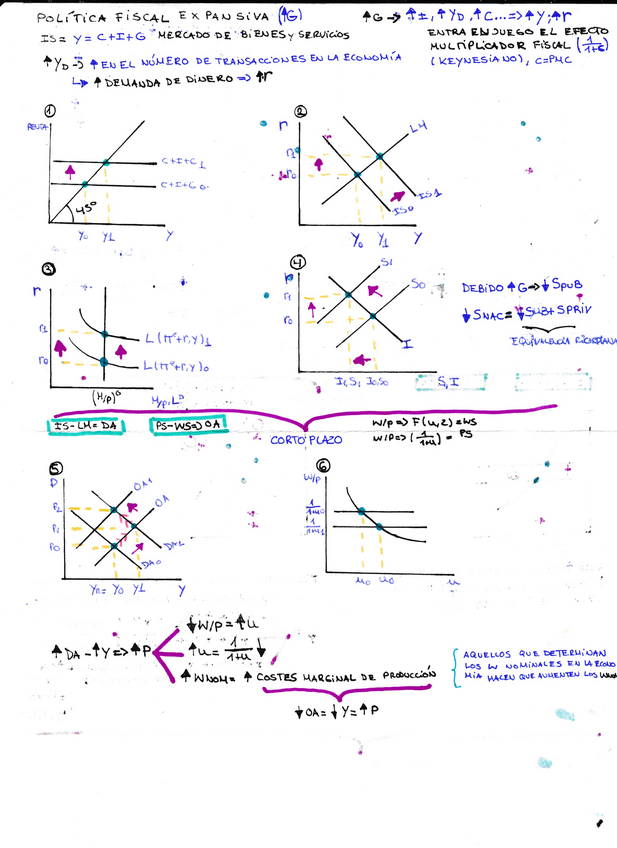 POLÍTICA FISCAL EXPANSIVA (↑G)
↑G → ↑I, ↑YD, ↑C... => ↑Y; ↑r
IS = Y = C+I+G "MERCADO DE BIENES y SERVICIOS
ENTRA EN JUEGO EL EFECTO
MULTIPLICADOR FISCAL
(KEYNESIANO), C=PMC
↑YD → ↑ EN EL NÚMERO DE TRANSACCIONES EN LA ECONOMÍA
↳ ↑ DEMANDA DE DINERO => ↑r
①
RENTA
C+I+G1
C+I+G0
45º
Y0 Y1 Y
②
r
LM
r1
r0
IS1
IS0
Y0 Y1 Y
③
r
r1
r0
L(πe+r,y)1
L(πe+r,y)0
M/P, LD
④
S1
S0
r1
r0
I
I1,S1 I0,S0 S,I
DEBIDO ↑G → ↓SPUB
↓SNAC = ↓SPUB + SPRIV
EQUIVALENCIA RICARDIANA
IS-LM = DA
PS-WS => OA
CORTO PLAZO
W/P => F(u,z) = WS
W/P => (1/1+u) = PS
⑤
P
OA1
OA
P2
P1
P0
DA1
DA0
Yn = Y0 Y1 Y
⑥
W/P
u0 u0 u
↑DA - ↑Y => ↑P
↓W/P = ↑u
↑u = 1/1+u ↓
↑WNOM = ↑ COSTES MARGINAL DE PRODUCCIÓN
↓OA = ↓Y = ↑P
AQUELLOS QUE DETERMINAN
LOS W NOMINALES EN LA ECONO
MÍA HACEN QUE AUMENTEN LOS WNOM